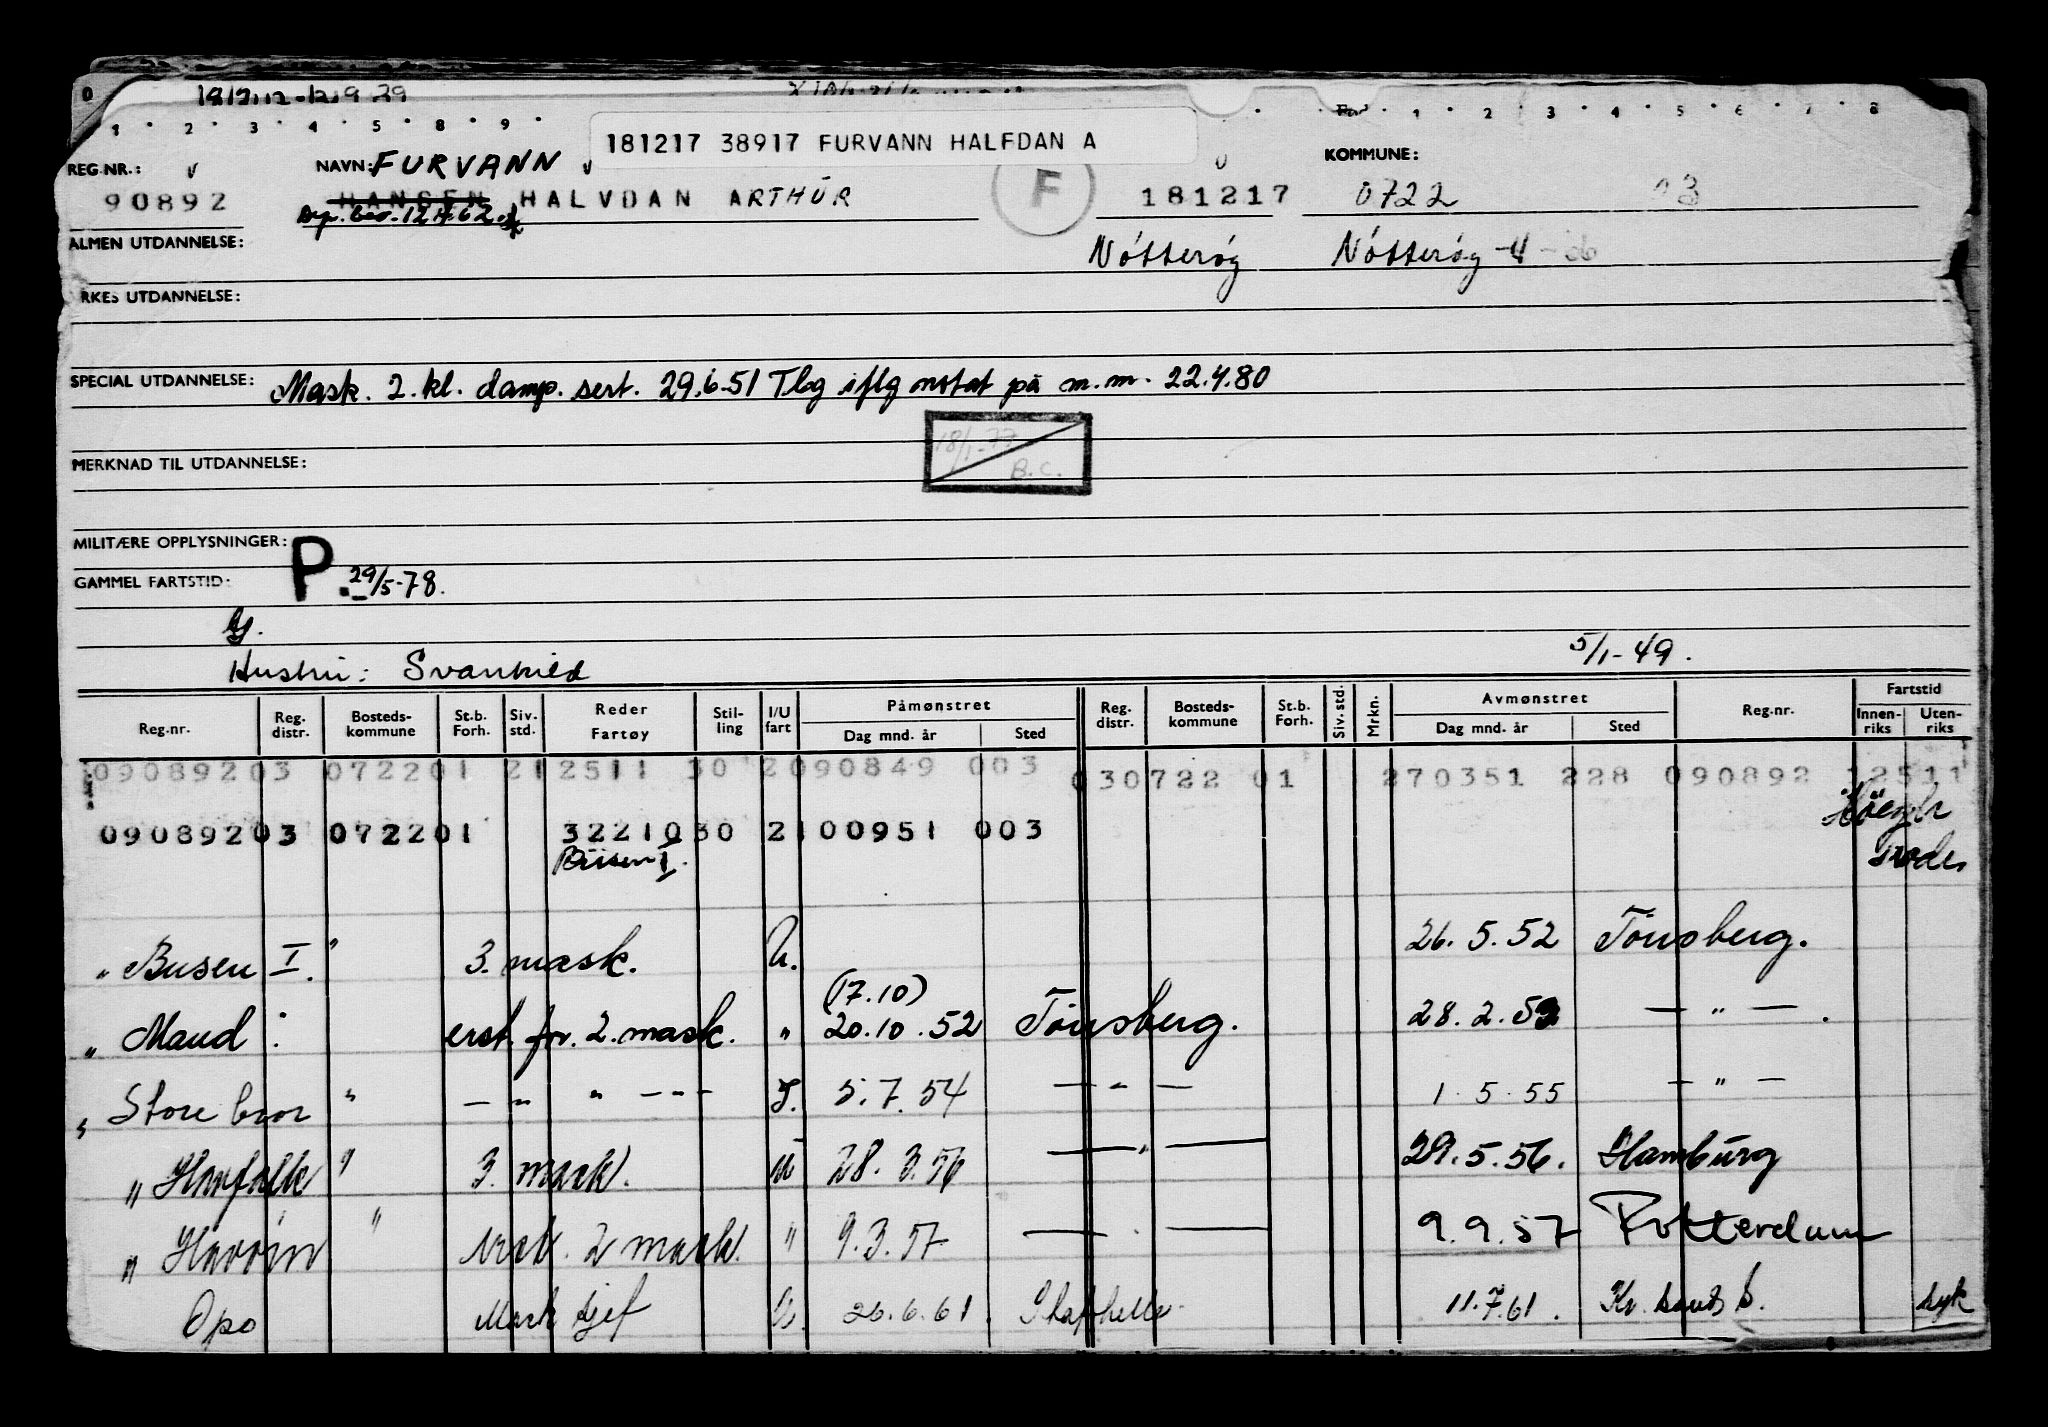 0
1 · 2 · 3 · 4 · 5 · 8 · 9 ·
1 · 2 · 3 · 4 · 5 · 6 · 7 · 8
181217 38917 FURVANN HALFDAN A
REG.NR.: v NAVN: FURVANN v KOMMUNE:
90892 HANSEN HALVDAN ARTHUR F 181217 0722 03
bev. 12.4.62.
ALMEN UTDANNELSE: Nötteröy Nötteröy
RKES UTDANNELSE:
SPECIAL UTDANNELSE: Mask. 2. kl. damp. sert. 29.6.51 Tbg iflg notat på m.m. 22.4.80
18/1-77
B.C.
MERKNAD TIL UTDANNELSE:
MILITÆRE OPPLYSNINGER: P.
GAMMEL FARTSTID: 29/5-78.
Hustru: Svanhild 5/1-49.
Reg.nr. Reg. distr. Bosteds-kommune St.b. Forh. Siv. std. Reder Fartøy Stil-ling I/U fart Påmønstret Dag mnd. år Sted Reg. distr. Bosteds-kommune St.b. Forh. Siv. std. Mrkn. Avmønstret Dag mnd. år Sted Reg.nr. Fartstid Innen-riks Uten-riks
09089203 072201 212511 30 2090849 003 030722 01 270351 228 090892 12511
09089203 072201 3221030 2100951 003
Busen I.
" Busen I. " 3. mask. U. 26.5.52 Tönsberg.
(17.10)
" Maud : erst. for. 2. mask. " 20.10.52 Tönsberg. 28.2.53 — " — .
" Store bror " — " " - - - I. 5.7.54 — " — 1.5.55 — " —
" Havfalk " 3. mask. U 28.3.56 — " — 29.5.56. Hamburg
" Havörn " 2 mask. " 9.3.57 — " — 9.9.57 Rotterdam
Opo Mask sjef U. 26.6.61. Stathelle 11.7.61. Kr. sand S. syk